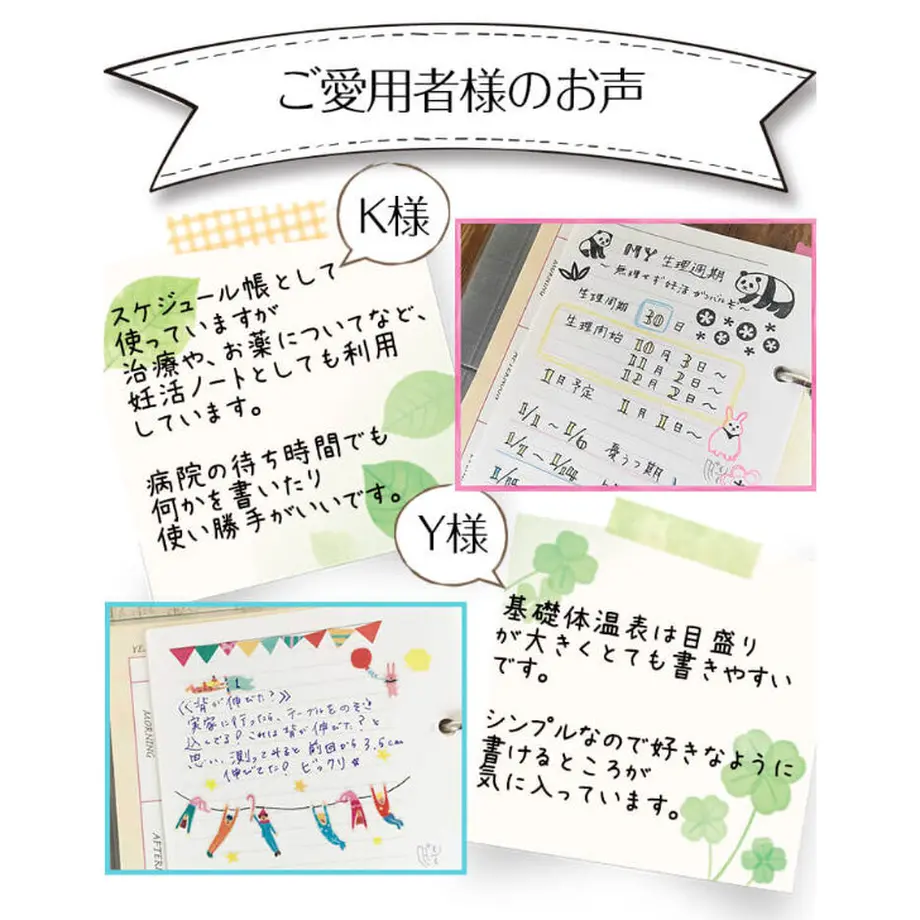 ご愛用者様のお声
K様
スケジュール帳として
使っていますが
治療や、お薬についてなど、
妊活ノートとしても利用
しています。
病院の待ち時間でも
何かを書いたり
使い勝手がいいです。
MY 生理週期
〜無理せず妊活ガンバルぞ〜
生理周期 30 日
生理開始 10月 3日〜
11月 2日〜
12月 2日〜
1月予定 1月 1日〜
憂うつ期
Y様
基礎体温表は目盛り
が大きくとても書きやすい
です。
シンプルなので好きなように
書けるところが
気に入っています。
MORNING
《背が伸びた?》
実家に行ったら、テーブルをのぞき
込んでる?これは背が伸びた?と
思い、測ってみると前回から3.5cm
伸びてた? ビックリ